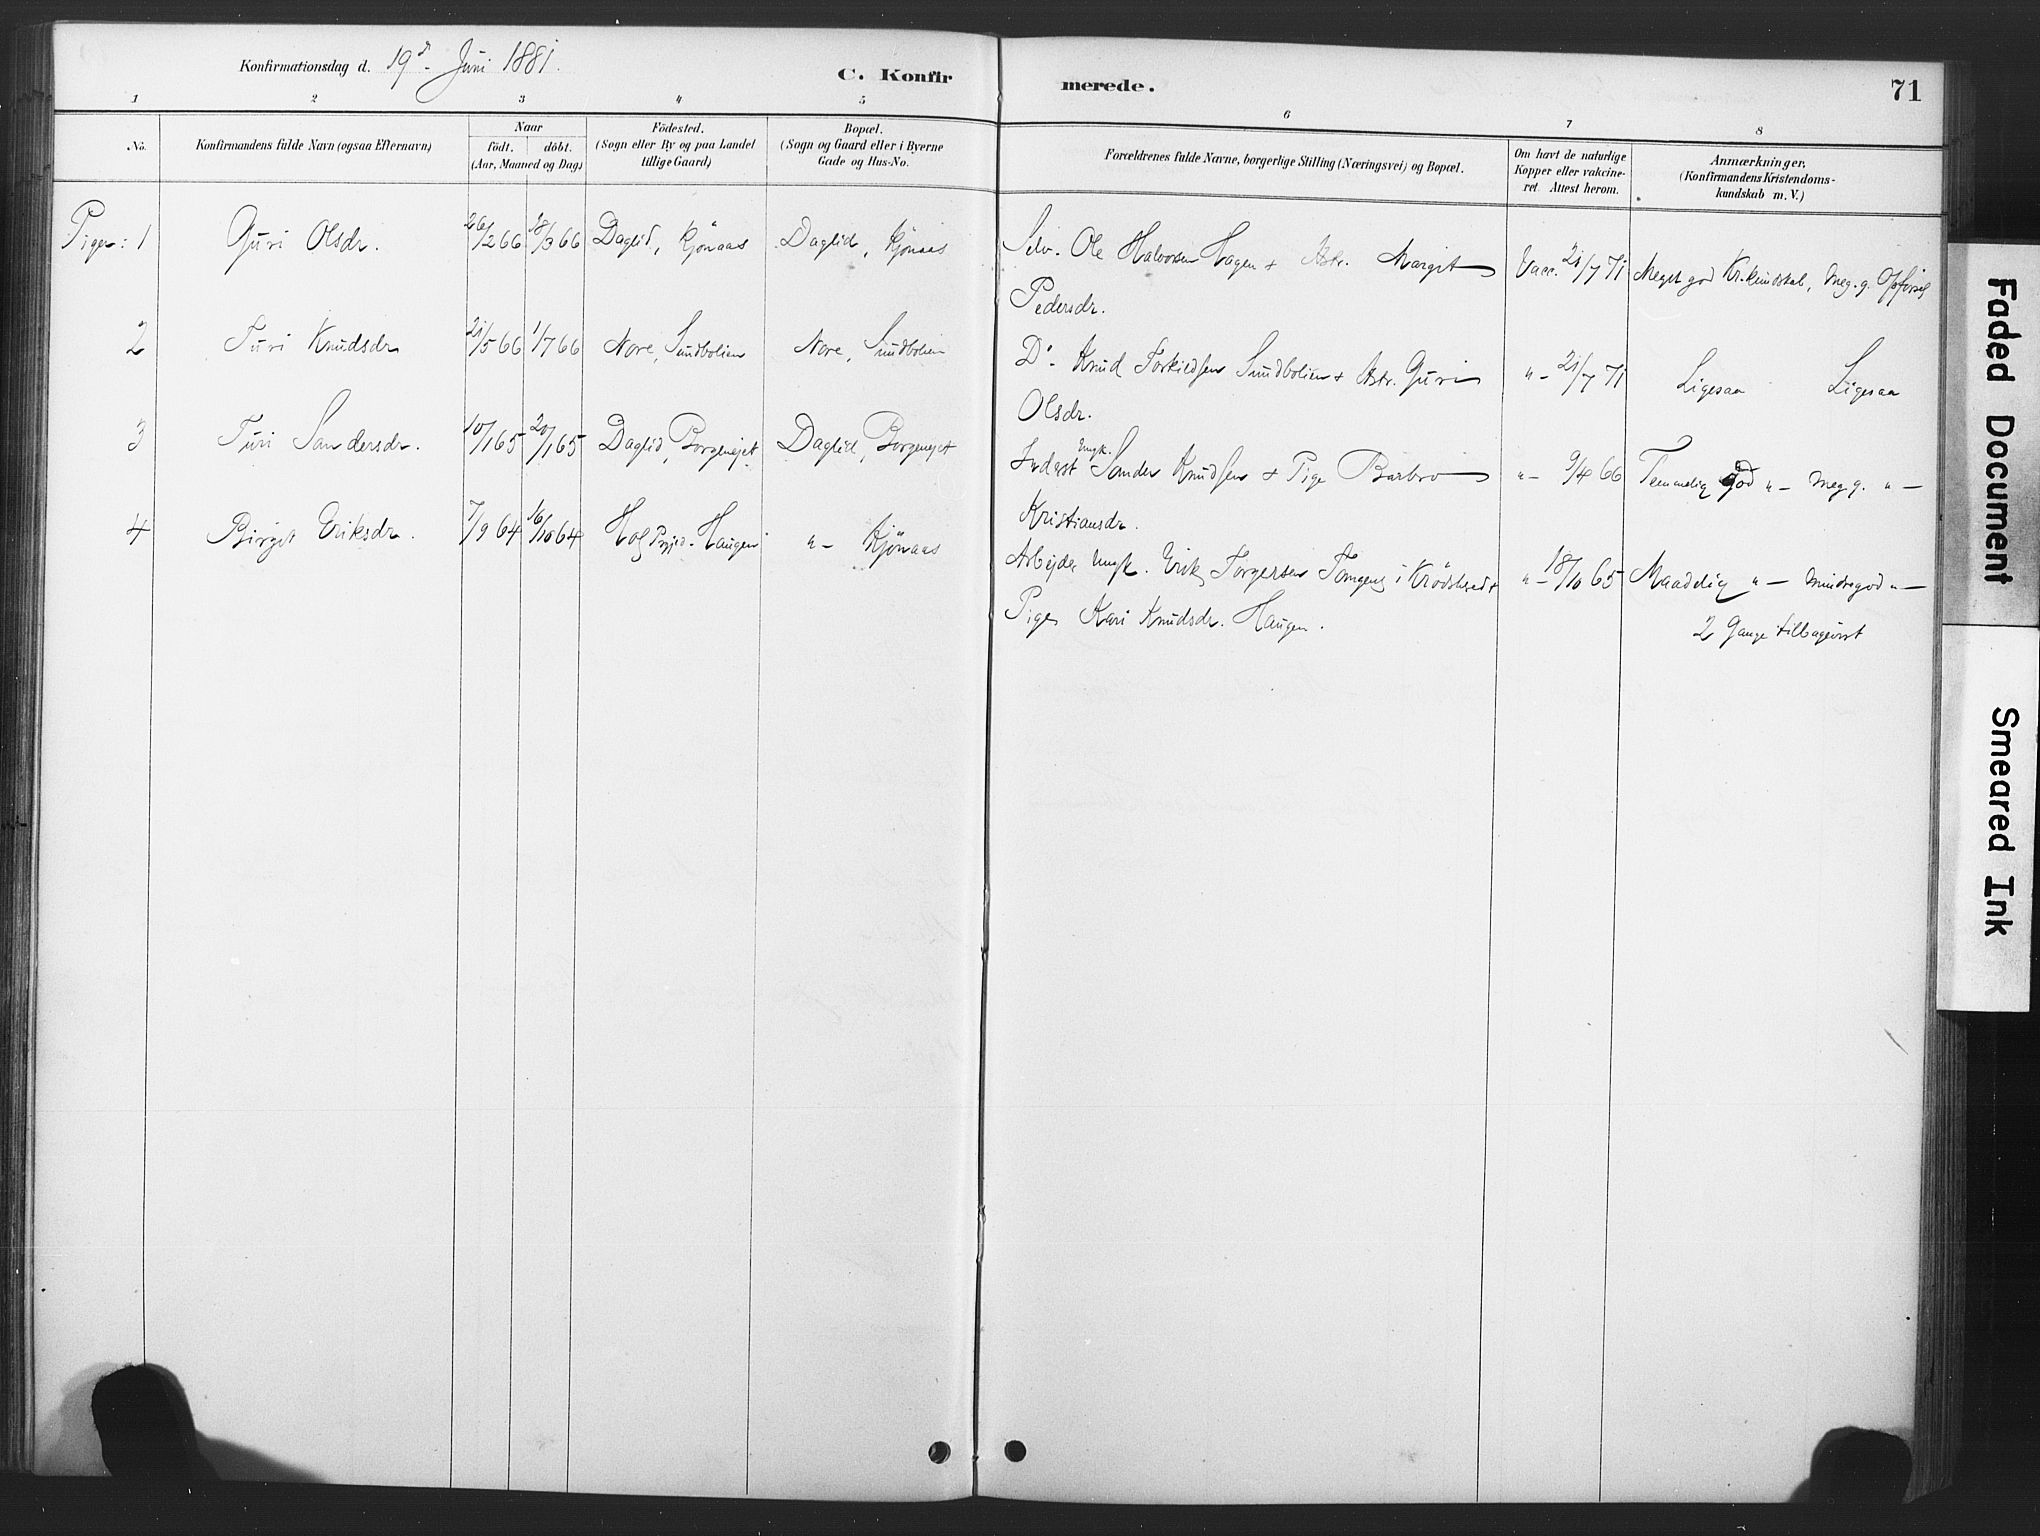 Konfirmationsdag d. 19de Juni 1881.
C. Konfirmerede.
71
1 2 3 4 5 6 7 8
No.
Konfirmandens fulde Navn (ogsaa Efternavn)
Naar
födt. döbt.
(Aar, Maaned og Dag)
Födested.
(Sogn eller By og paa Landet
tillige Gaard)
Bopæl.
(Sogn og Gaard eller i Byerne
Gade og Hus-No.
Forældrenes fulde Navne, borgerlige Stilling (Næringsvei) og Bopæl.
Om havt de naturlige
Kopper eller vakcine-
ret. Attest herom.
Anmærkninger.
(Konfirmandens Kristendoms-
kundskab m. V.)
Piger: 1 Guri Olsdr. 26/2 66 18/3 66 Daglid, Kjönaas Daglid, Kjönaas Selv. Ole Halvorsen Hagen + Hstr. Margit Vacc. 21/7 71 Meget god Kr.kundskab, Meg. g. Opförsel
Pedersdr.
2 Turi Knudsdr 21/5 66 1/7 66 Nore, Sundbolien Nore, Sundbolien Do. Knud Torkildsen Sundbolien + Hstr. Guri " - 21/7 71 Ligesaa Ligesaa
Olsdr.
3 Turi Sandersdr. 10/1 65 20/1 65 Daglid, Borgenejet Daglid, Borgenejet Inderst Ungk. Sander Knudsen + Pige Barbro " - 9/4 66 Temmelig god " - Meg g. " -
Kristiansdr.
4 Birgit Eriksdr. 7/9 64 16/10 64 Hof Prgjed. Haugen " - Kjönaas Arbejder Ungk. Erik Torgersen i Krödsherad +  " - 18/10 65 Maadelig " - Mindre god " -
Pige Kari Knudsdr. Haugen. 2 Gange tilbagevist
Faded Document
Smeared Ink